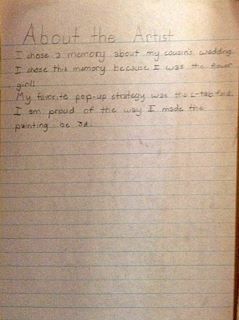 About the Artist
I chose a memory about my cousin's wedding.
I chose this memory because I was the flower
girl!
My favorite pop-up strategy was the L-tab fold.
I am proud of the way I made the
painting be 3d.